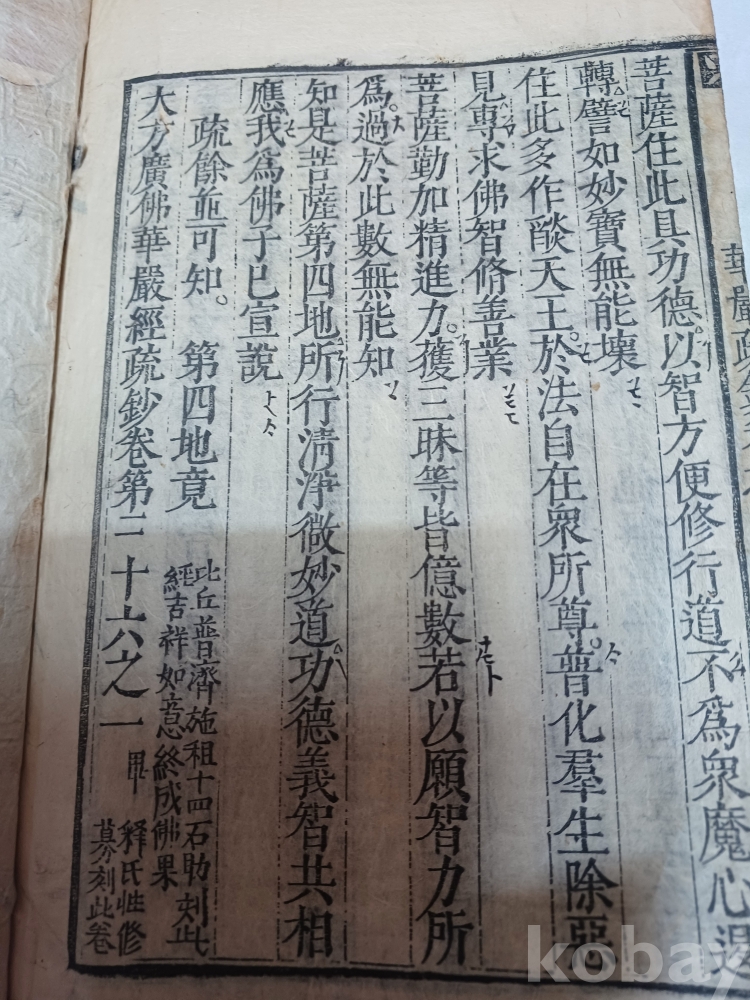 華嚴疏
菩薩住此具功德以智方便修行道不爲衆魔心退
轉譬如妙寶無能壞
住此多作燄天王於法自在衆所尊普化羣生除惡
見專求佛智脩善業
菩薩勤加精進力獲三昧等皆億數若以願智力所
爲過於此數無能知
知是菩薩第四地所行清淨微妙道功德義智共相
應我爲佛子已宣說
疏餘並可知。 第四地竟
比丘普濟施租十四石助刻此
經吉祥如意終成佛果
大方廣佛華嚴經疏鈔卷第二十六之一
释氏性修
募刻此卷
kobay